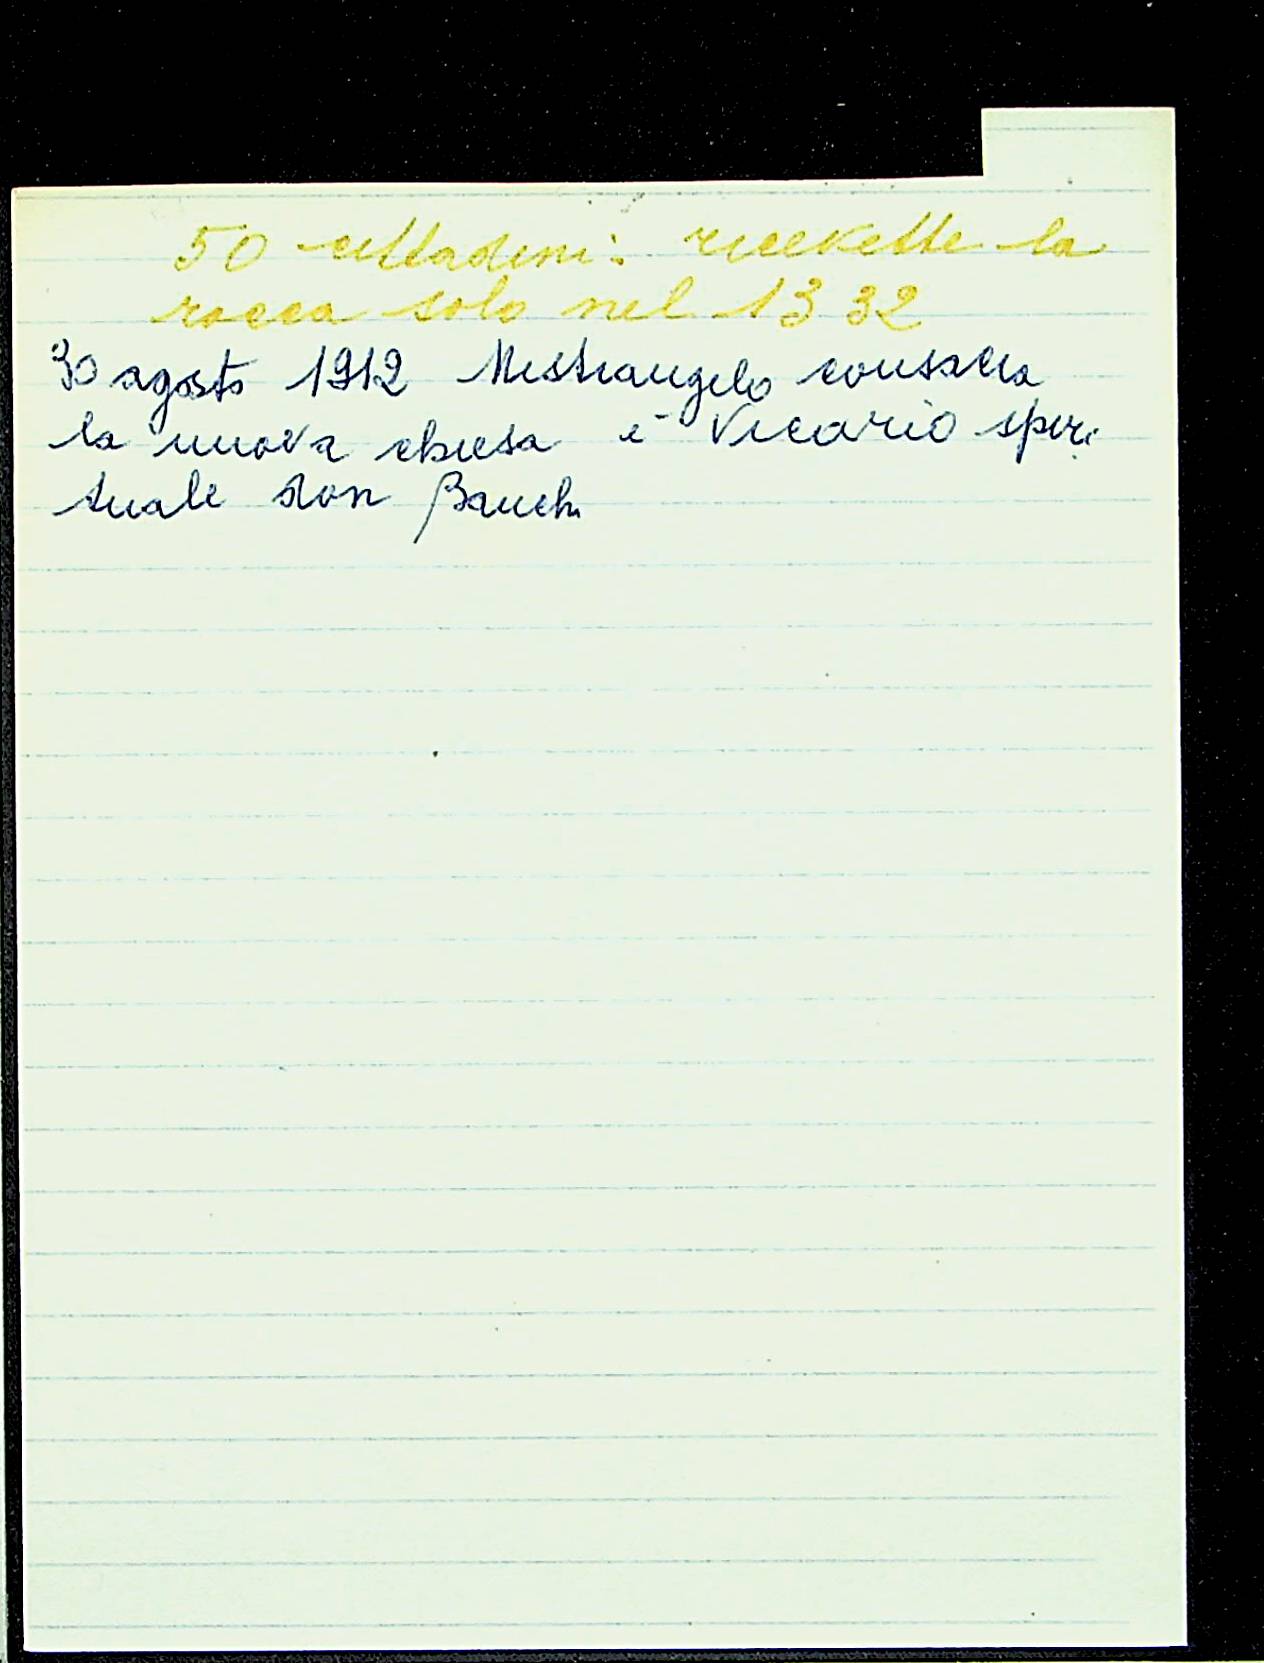 50 cittadini: ricevette la
rocca solo nel 1332
30 agosto 1912 Mistrangelo consacra
la nuova chiesa è Vicario spiri
tuale don Bauchi